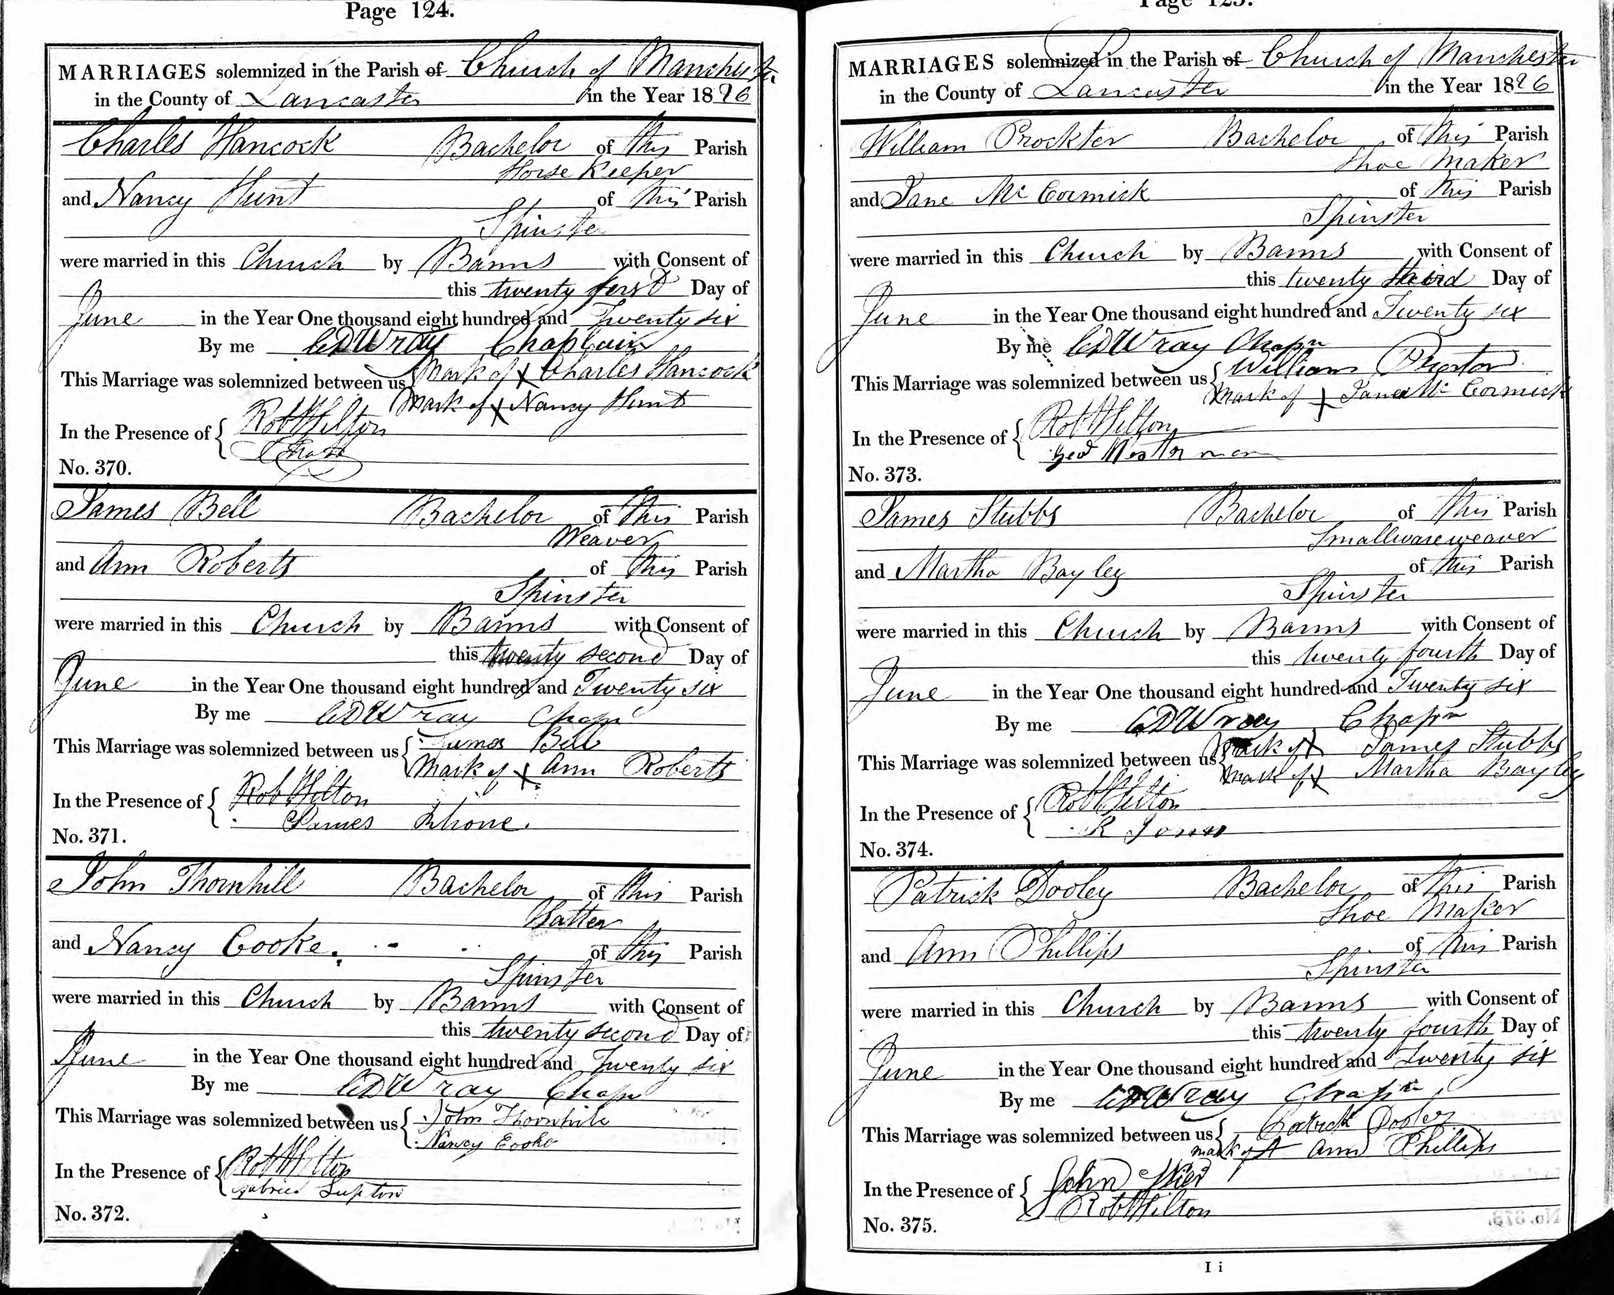 Page 124.
MARRIAGES solemnized in the Parish of Church of Manchester
in the County of Lancaster in the Year 1826
Charles Hancock Bachelor of this Parish
Horse Keeper
and Nancy Hunt of this Parish
Spinster
were married in this Church by Banns with Consent of
this twenty first Day of
June in the Year One thousand eight hundred and Twenty six
By me CDWray Chaplain
This Marriage was solemnized between us Mark of X Charles Hancock
Mark of X Nancy Hunt
In the Presence of Rob Wilton
No. 370.
James Bell Bachelor of this Parish
Weaver
and Ann Roberts of this Parish
Spinster
were married in this Church by Banns with Consent of
this twenty second Day of
June in the Year One thousand eight hundred and Twenty six
By me CDWray Chapn
This Marriage was solemnized between us James Bell
Mark of X Ann Roberts
In the Presence of Rob Wilton
James
No. 371.
John Thornhill Bachelor of this Parish
Hatter
and Nancy Cooke. of this Parish
Spinster
were married in this Church by Banns with Consent of
this twenty second Day of
June in the Year One thousand eight hundred and Twenty six
By me CDWray Chapn
This Marriage was solemnized between us John Thornhill
Nancy Cooke
In the Presence of Rob Wilton
Gabriel Lupton
No. 372.
Page 125.
MARRIAGES solemnized in the Parish of Church of Manchester
in the County of Lancaster in the Year 1826
William Prockter Bachelor of this Parish
Shoe Maker
and Jane Mc Cormick of this Parish
Spinster
were married in this Church by Banns with Consent of
this twenty third Day of
June in the Year One thousand eight hundred and Twenty six
By me CDWray Chapn
This Marriage was solemnized between us William
Mark of X Jane Mc Cormick
In the Presence of Rob Wilton
Geo
No. 373.
James Stubbs Bachelor of this Parish
Smallware weaver
and Martha Bayley of this Parish
Spinster
were married in this Church by Banns with Consent of
this twenty fourth Day of
June in the Year One thousand eight hundred and Twenty six
By me CDWray Chapn
This Marriage was solemnized between us Mark of X James Stubbs
Mark of X Martha Bayley
In the Presence of Rob Wilton
R Jones
No. 374.
Patrick Dooley Bachelor of this Parish
Shoe Maker
and Ann Phillips of this Parish
Spinster
were married in this Church by Banns with Consent of
this twenty fourth Day of
June in the Year One thousand eight hundred and Twenty six
By me CDWray Chapn
This Marriage was solemnized between us Patrick Dooley
mark of X Ann Phillips
In the Presence of John
Rob Wilton
No. 375.
I i